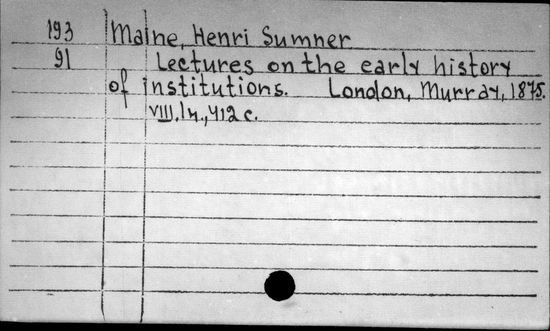 193 Maine, Henri Sumner
91 Lectures on the early history
of institutions. London, Murray, 1875.
VIII, 1 н., 412 с.